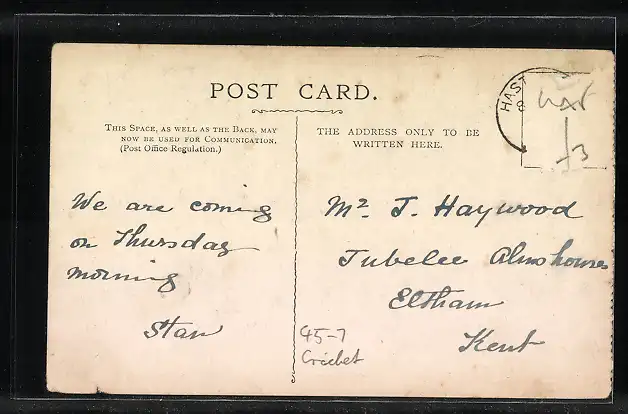 POST CARD.
THIS SPACE, AS WELL AS THE BACK, MAY
NOW BE USED FOR COMMUNICATION.
(Post Office Regulation.)
THE ADDRESS ONLY TO BE
WRITTEN HERE.
HAST
8
£3
We are coming
on Thursday
morning
Stan
Mr. J. Haywood
Jubelee Almshouses
Eltham
Kent
45-7
Cricket